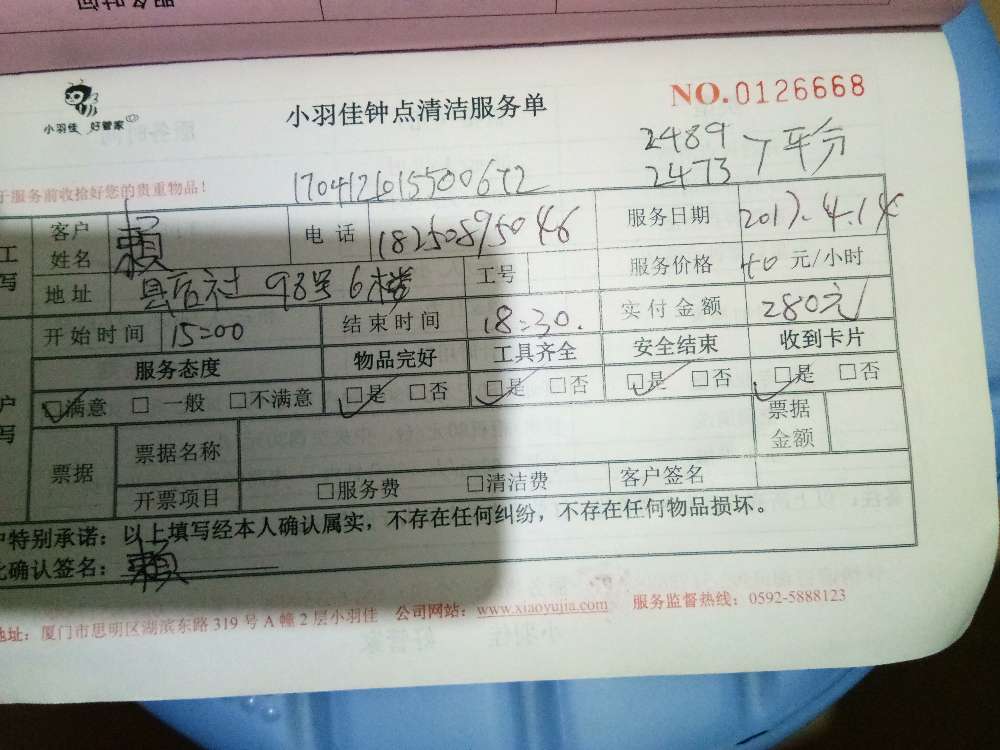 服务时间
小羽佳 好管家
小羽佳钟点清洁服务单
NO.0126668
2489
2473 丫平分
于服务前收拾好您的贵重物品！
客户姓名 賴 电话 18250895046 服务日期 2017.4.14
地址 县后社 98号6楼 工号 服务价格 40 元/小时
开始时间 15:00 结束时间 18:30. 实付金额 280元
服务态度 物品完好 工具齐全 安全结束 收到卡片
☑满意 □ 一般 □不满意 ☑是 □否 ☑是 □否 ☑是 □否 ☑是 □否
票据 票据名称 票据金额
开票项目 □服务费 □清洁费 客户签名
户特别承诺：以上填写经本人确认属实，不存在任何纠纷，不存在任何物品损坏。
此确认签名：賴
地址：厦门市思明区湖滨东路 319 号 A 幢 2 层小羽佳 公司网站：www.xiaoyujia.com 服务监督热线：0592-5888123